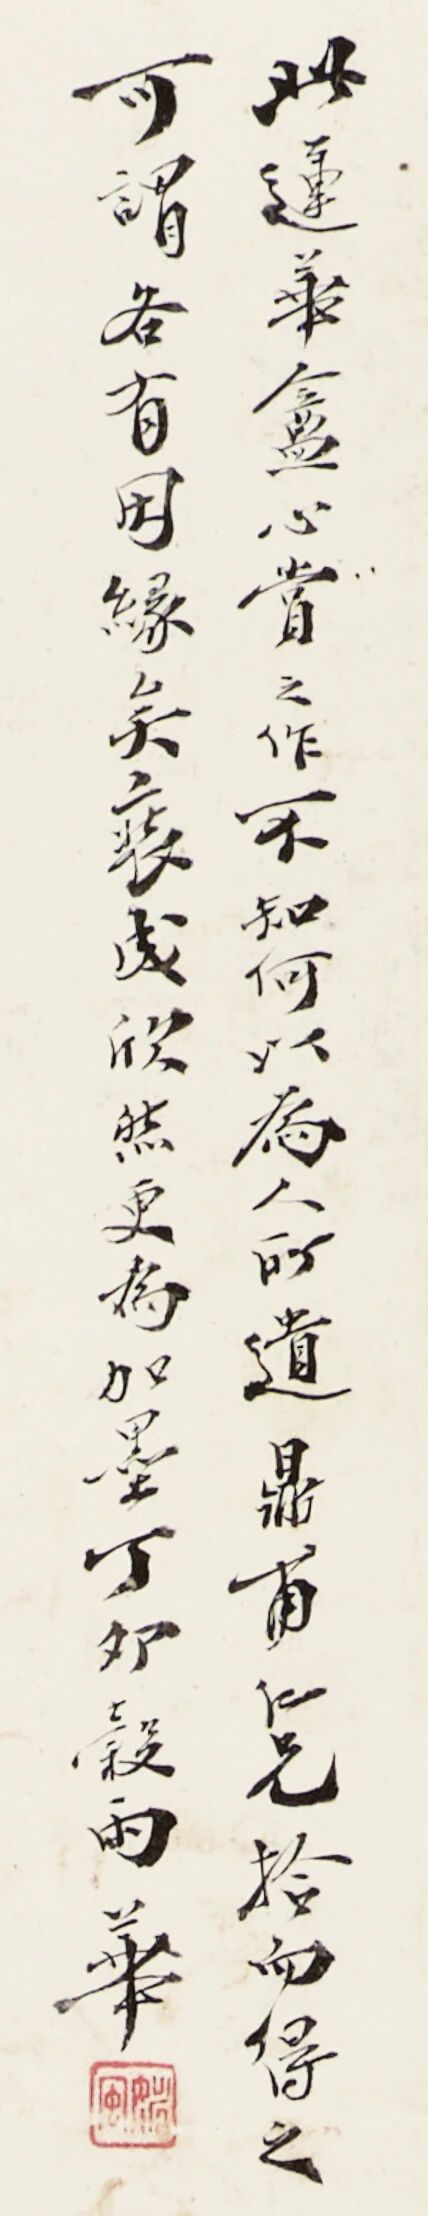 此蓮華盦心賞之作不知何以為人所遺鼎甫仁兄拾而得之
可謂各有因緣矣裝成欣然更為加墨丁卯穀雨華